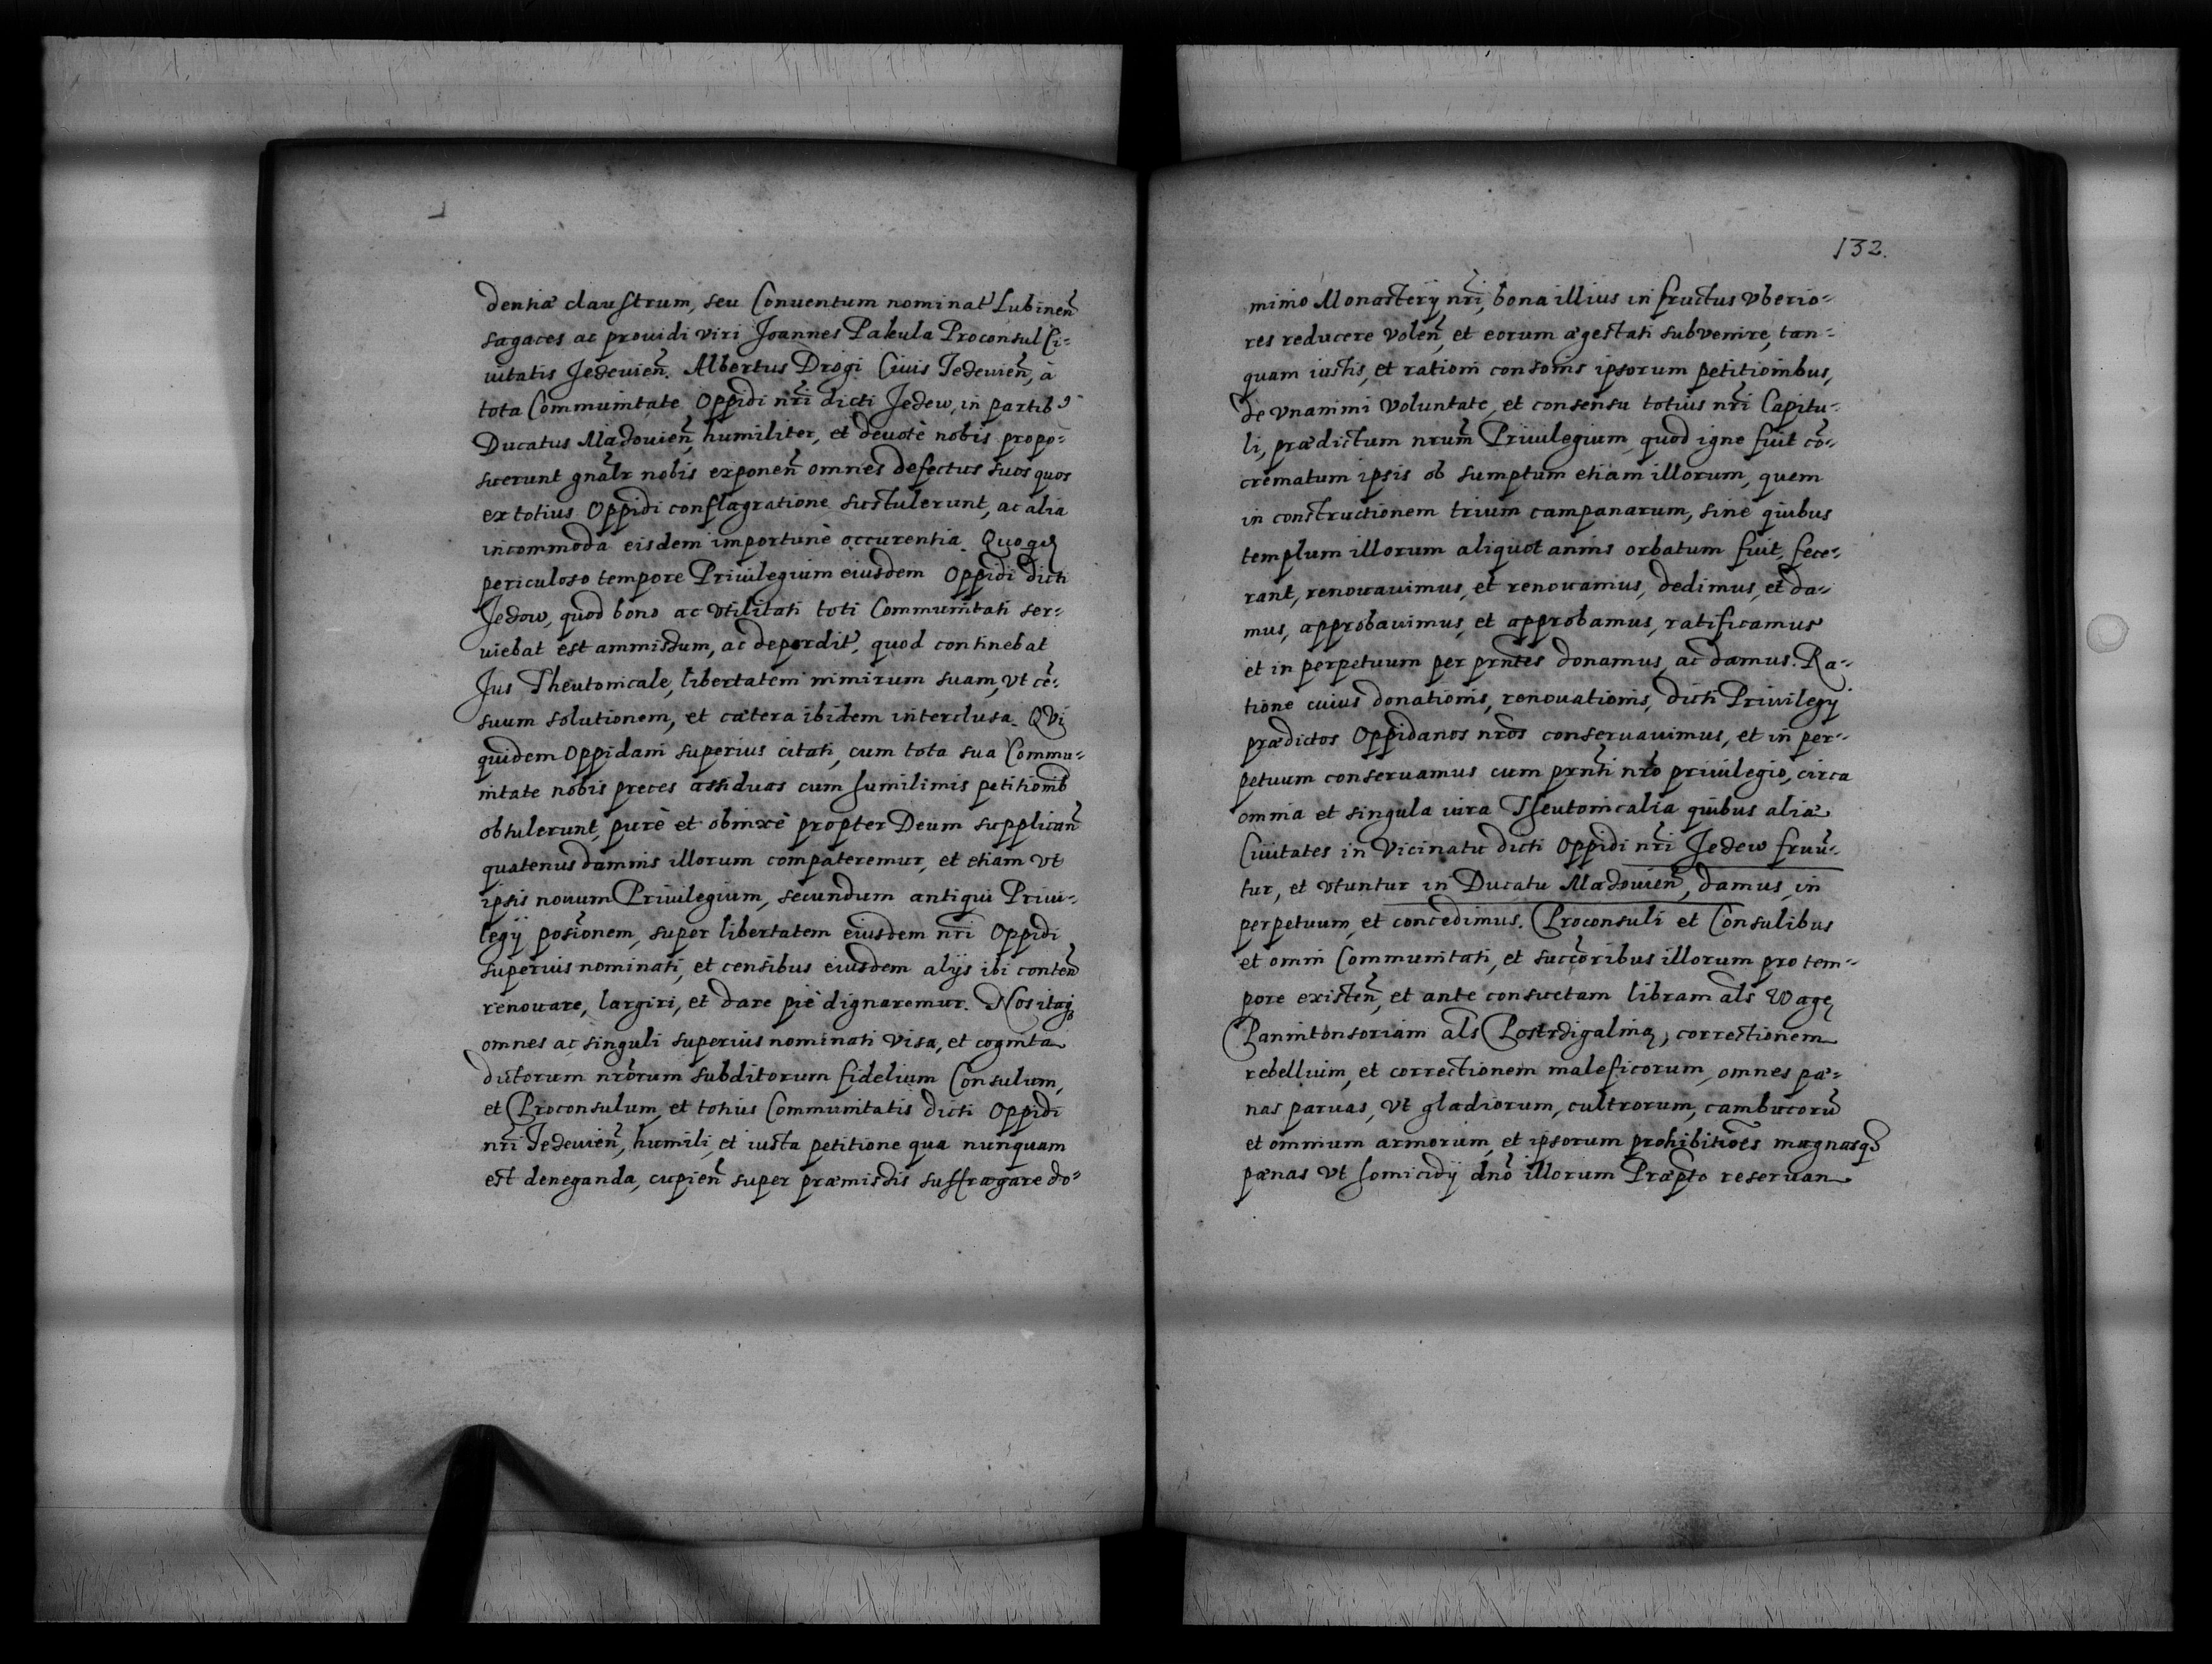 dentiæ claustrum, seu Conuentum nominat Lubinen̄
sagaces ac prouidi viri Joannes Pakula Proconsul Ci=
uitatis Jedeuien̄. Albertus Drogi Ciuis Jedeuien̄, à
tota Communitate Oppidi nr̄i dicti Jedew, in partib9
Ducatus Madouien̄, humiliter, et deuotè nobis propo=
suerunt gnālr nobis exponen̄ omnes defectus suos quos
ex totius Oppidi conflagratione sustulerunt, ac alia
incommoda eisdem importunè occurentia. Quoq
periculoso tempore Priuilegium eiusdem Oppidi dicti
Jedow, quod bono ac vtilitati toti Communitati ser=
uiebat est ammissum, ac deperdit, quod continebat
Jus Theutonicale, libertatem nimirum suam, vt cē=
suum solutionem, et cætera ibidem interclusa. QVi
quidem Oppidani superius citati, cum tota sua Commu=
nitate nobis preces assiduas cum humilimis petitionib
obtulerunt, purè et obnixè propter Deum supplican̄
quatenus damnis illorum compateremur, et etiam vt
ipsis nouum Priuilegium, secundum antiqui Priui=
legij posīonem, super libertatem eiusdem nr̄i Oppidi
superius nominati, et censibus eiusdem alijs ibi conten̄
renouare, largiri, et dare piè dignaremur. Nos itaq3
omnes ac singuli superius nominati visa, et cognita
dictorum nrōrum subditorum fidelium Consulum,
et Proconsulum, et totius Communitatis dicti Oppidi
nr̄i Jedeuien̄, humili, et iusta petitione qua nunquam
est deneganda, cupien̄ super præmissis suffragare do=
132.
minio Monasterij nr̄i, bona illius in fructus vberio=
res reducere volen̄, et eorum ægestati subvenire, tan=
quam iustis, et rationi consonis ipsorum petitionibus,
de vnanimi voluntate, et consensu totius nr̄i Capitu=
li, prædictum nrūm Priuilegium, quod igne fuit cō=
crematum ipsis ob sumptum etiam illorum, quem
in constructionem trium campanarum, sine quibus
templum illorum aliquot annis orbatum fuit, fece=
rant, renouauimus, et renouamus, dedimus, et da=
mus, approbauimus, et approbamus, ratificamus
et in perpetuum per prn̄tes donamus, ac damus. Ra=
tione cuius donationis, renouationis, dicti Priuilegij
prædictos Oppidanos nrōs conseruauimus, et in per=
petuum conseruamus cum prn̄ti nrō priuilegio, circa
omnia et singula iura Theutonicalia quibus aliæ
Ciuitates in Vicinatu dicti Oppidi nr̄i Jedew fruū=
tur, et vtuntur in Ducatu Madouien̄, damus, in
perpetuum, et concedimus. Proconsuli et Consulibus
et omni Communitati, et succōribus illorum pro tem=
pore existen̄, et ante consuetam libram als̄ Wagę
Pannitonsoriam als̄ Postrdigalnią, correctionem
rebellium, et correctionem maleficorum, omnes pæ=
nas paruas, vt gladiorum, cultrorum, cambucorū
et omnium armorum, et ipsorum prohibitiōes magnasq3
pænas vt homicidij dnō illorum Præpto reseruan